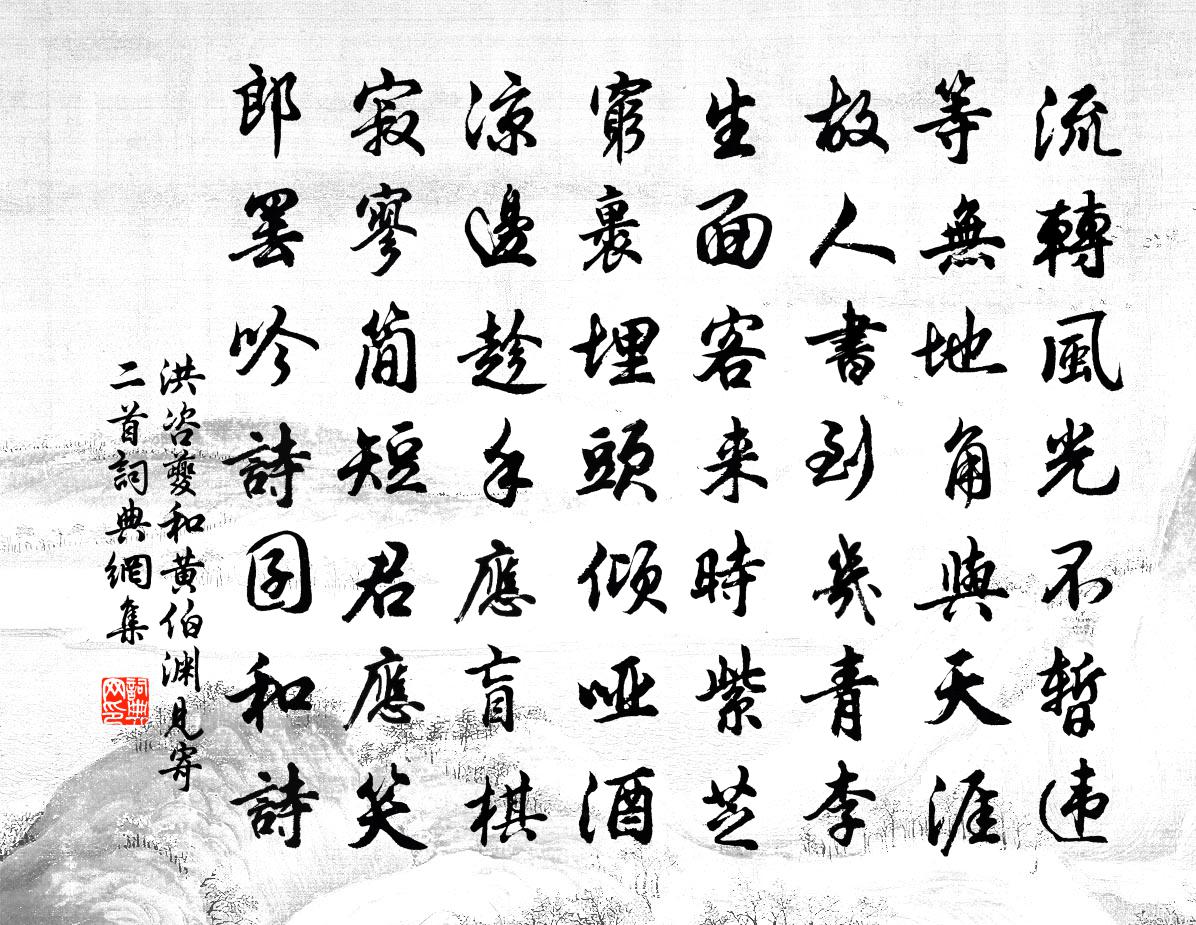 流轉風光不暫違
等無地角與天涯
故人書到幾青李
生面客来時紫芝
窮裏埋頭傾啞酒
涼邊趁手應盲棋
寂寥簡短君應笑
郎罷吟詩囝和詩
洪咨夔和黄伯淵見寄
二首詞典網集
詞典网印